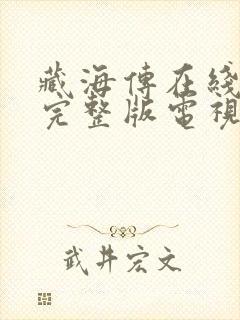 藏海傳在綫
完整版電視
武井宏文